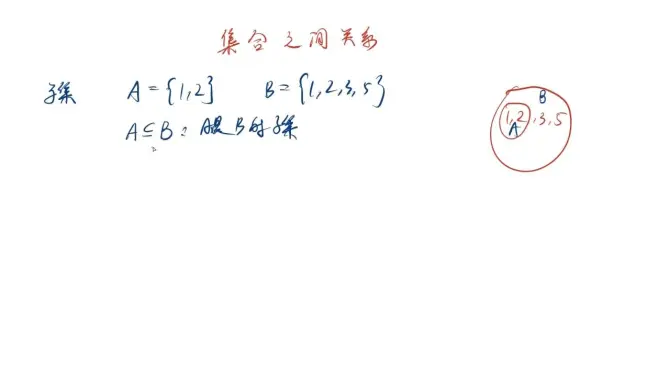 集合之间关系
子集 A={1,2} B={1,2,3,5}
A⊆B: A是B的子集
B
1,2,3,5
A